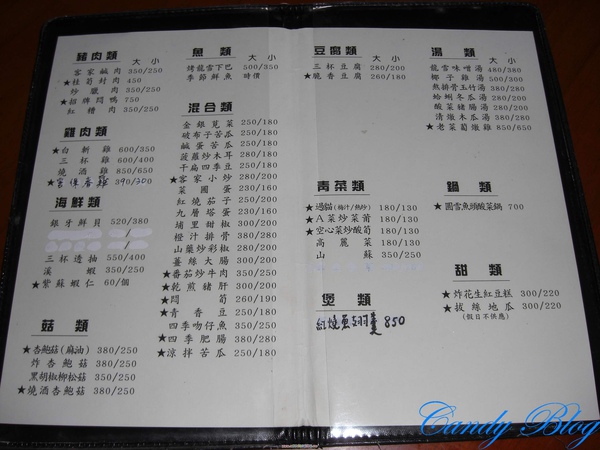 豬肉類 大 小
客家鹹肉 350/250
★桂筍封肉 450
炒臘肉 350/250
★招牌悶鴨 750
紅糟肉 350/250
雞肉類 大 小
★白斬雞 600/350
三杯雞 600/400
燒酒雞 850/650
★宮保春雞
海鮮類 大 小
銀牙鮮貝 520/380
三杯透抽 550/400
溪蝦 350/250
★紫蘇蝦仁 60/個
菇類 大 小
★杏鮑菇(麻油) 380/250
炸杏鮑菇 380/250
黑胡椒柳松菇 350/250
★燒酒杏鮑菇 380/250
魚類 大 小
烤龍雪下巴 500/350
季節鮮魚 時價
混合類 大 小
金銀莧菜 250/180
破布子苦瓜 250/180
鹹蛋苦瓜 250/180
菠蘿炒木耳 280/180
干扁四季豆 250/180
★客家小炒 280/200
菜圃蛋 230/160
紅燒茄子 250/200
九層塔蛋 230/160
埔里甜椒 300/200
橙汁排骨 380/280
山藥炒彩椒 280/200
薑絲大腸 300/200
★番茄炒牛肉 350/250
★乾煎豬肝 300/200
★悶筍 260/190
★青香豆 250/180
四季吻仔魚 350/250
★四季肥腸 380/280
★涼拌苦瓜 250/180
豆腐類 大 小
三杯豆腐 280/200
★脆香豆腐 260/180
青菜類 大 小
★過貓(梅汁/熱炒) 180/130
★A菜炒菜莆 180/130
★空心菜炒酸筍 180/130
高麗菜 180/130
山蘇 350/250
煲類
紅燒魚翅羹 850
湯類 大 小
龍雪味噌湯 480/380
椰子雞湯 500/300
熬排骨玉竹湯 380/280
蛤蜊冬瓜湯 380/280
酸菜豬腸湯 380/280
清燉木瓜湯 380/280
★老菜葡燉雞 850/650
鍋類
★團雪魚頭酸菜鍋 700
甜類 大 小
★炸花生紅豆糕 300/220
★拔絲地瓜 300/220
(假日不供應)
Candy Blog